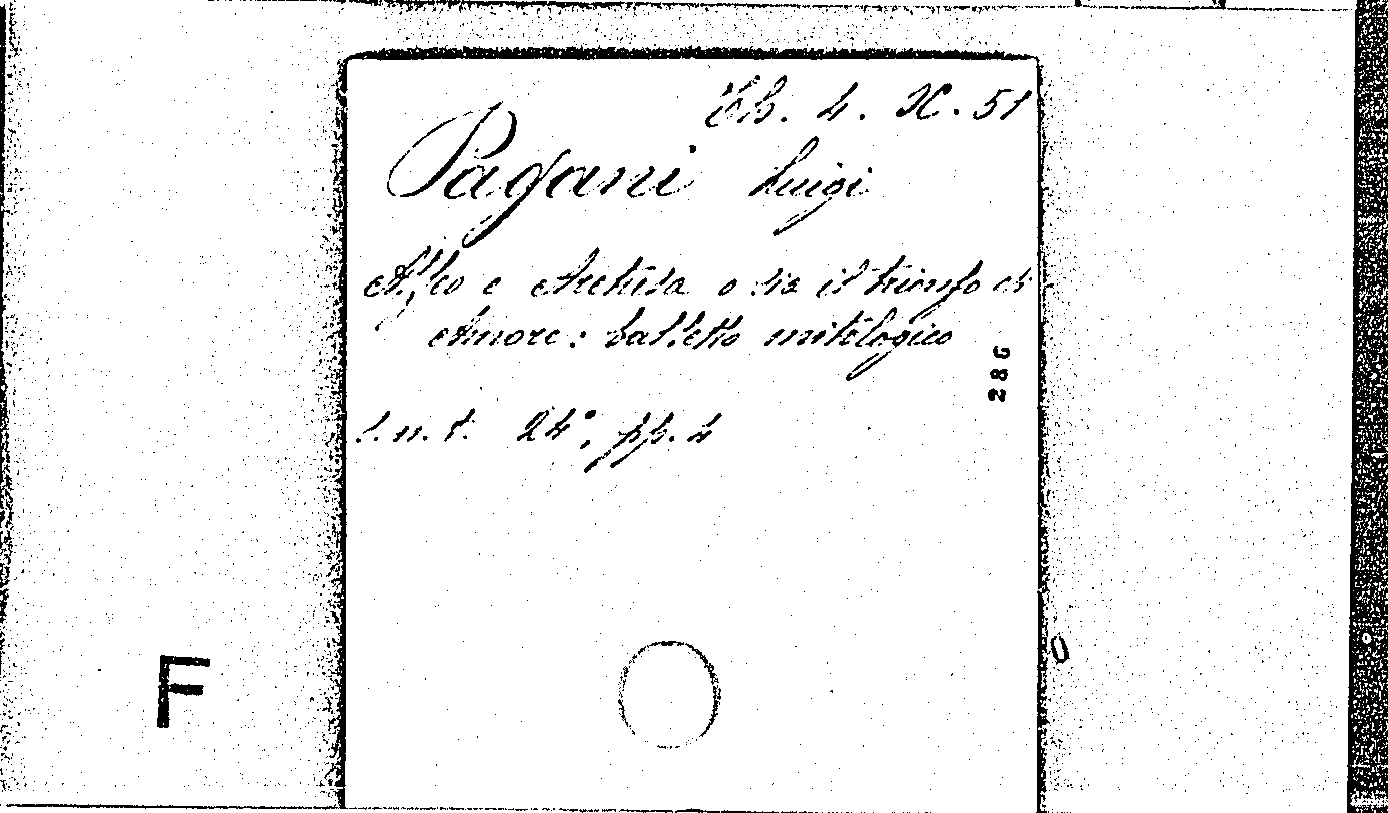 4. X. 51
Pagani Luigi
Alfeo e Aretusa o sia il trionfo di
Amore: balletto mitologico
286
s.n.t. 24°, pp. 4
F